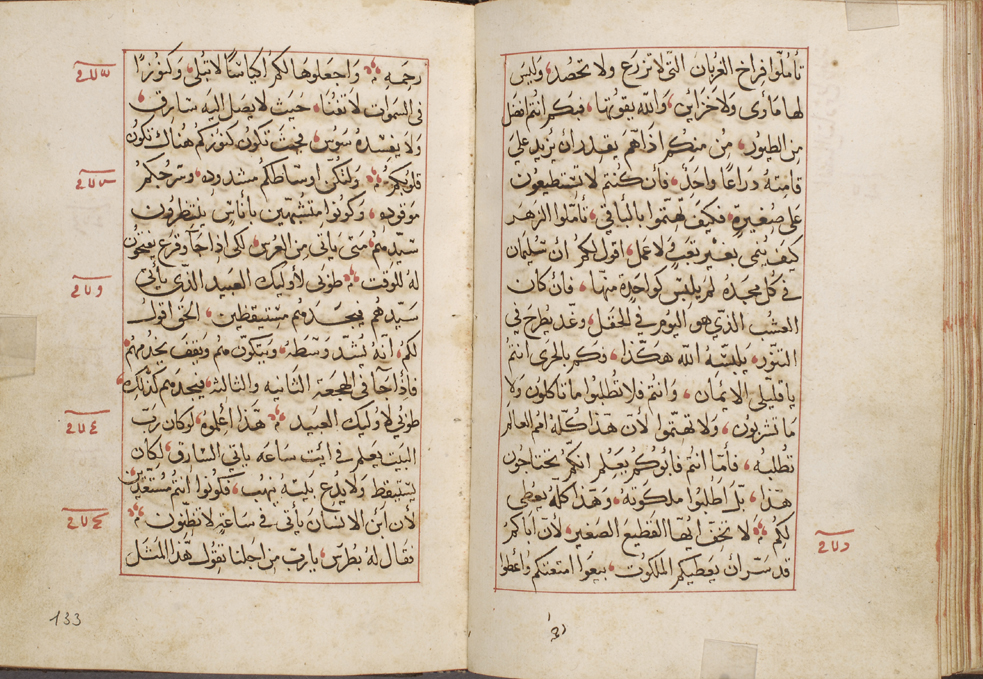 تأملوا فراخ الغربان التي لا تزرع ولا تحصد، وليس
لها مأوى ولا خزاين، والله يقوتها، فبكم انتم افضل
من الطيور، مَن منكم اذا اهتم يقدر ان يزيد على
قامته ذراعًا واحد، فان كنتم لا تستطيعون
على صغيرة، فكيف تهتموا بالباقي، تأملوا الزهر
كيف يُنمى بغير تعب ولا عمل، اقول لكم ان سليمان
في كل مجده لم يلبس كواحدة منها، فان كان
العشب الذي هو اليوم في الحقل، وغد يطرح في
التنور، يلبسه الله هكذا، وكم بالحرى انتم
يا قليلي الايمان، وانتم فلا تطلبوا ما تأكلون ولا
ما تشربون، ولا تهتموا لأن هذا كله امم العالم
تطلبه، فأما انتم فابوكم يعلم انكم تحتاجون
هذا، بل اطلبوا ملكوته، وهذا كله يعطى
لكم لا تخف ايها القطيع الصغير، لأن اباكم
قد سرّ ان يعطيكم الملكوت، بيعوا امتعتكم واعطوا
رحمه واجعلوها لكم اكياسًا لا تبلى، وكنوزًا
في السموات لا تفنا، حيث لا يصل اليه سارق،
ولا يفسده سوس، فحيث تكون كنوزكم هناك تكون
قلوبكم ولتكن اوساطكم مشدوده، وسرجكم
موقوده، وكونوا متشبهين بأناس ينتظرون
سيدهم، متى يأتي من العرس، لكي اذا جا وقرع يفتحون
له للوقت طوبى لأوليك العبيد الذي يأتي
سيدهم فيجدهم مستيقظين، الحق اقول
لكم، انه يشد وسطه، ويتكون هم ويقف يخدمهم
فاذا جا في الهجعة الثانيه والثالثه، فيجدهم كذلك،
طوبى لأوليك العبيد هذا اعلموه، لو كان ربّ
البيت يعلم في ايت ساعه يأتي السارق، لكان
يستيقظ ولا يدع بيته ينهب، فكونوا انتم مستعدين،
لأن ابن الانسان يأتي في ساعة لا تظنون
فقال له بطرس، يا ربّ من اجلنا تقول هذا المثل
133